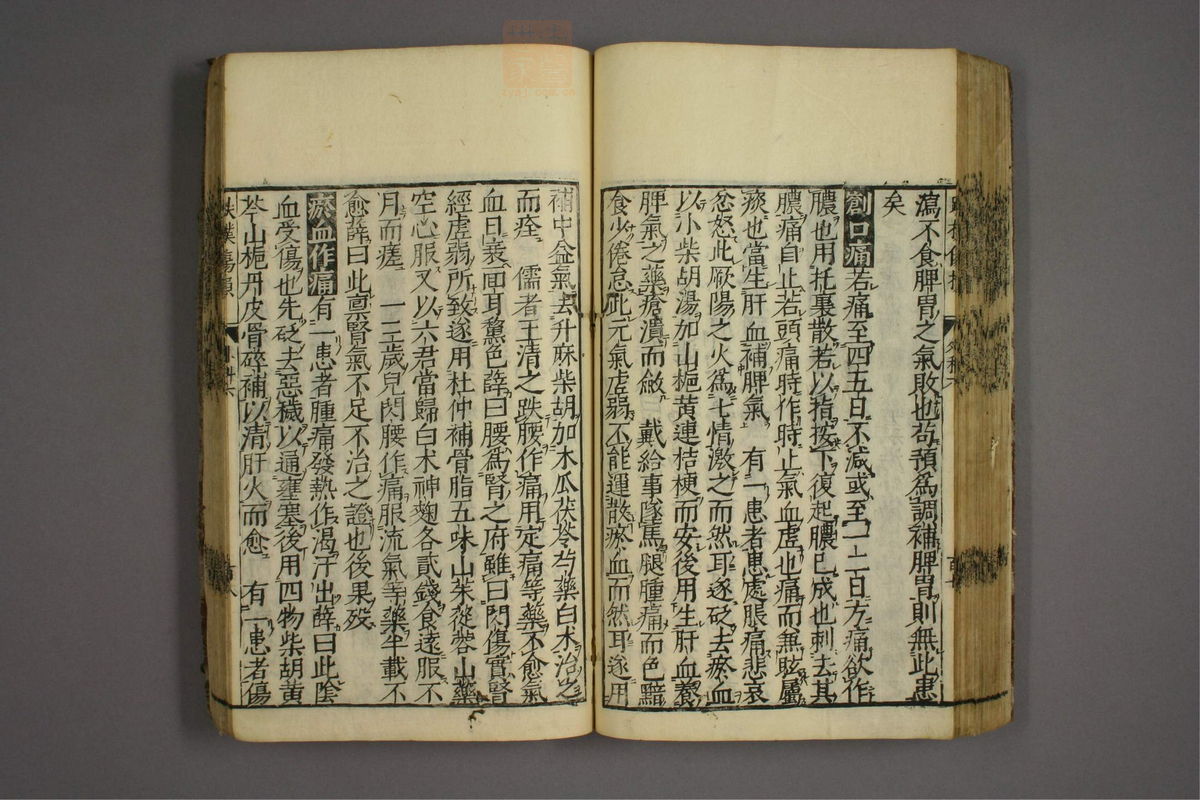 瀉不食脾胃之氣敗也苟預爲調補脾胃則無此患
矣
創口痛若痛至四五日不減或至一二日方痛欲作
膿也用托裏散若以指按下復起膿已成也刺去其
膿痛自止若頭痛時作時止氣血虛也痛而兼眩屬
痰也當生肝血補脾氣 有一患者患處脹痛悲哀
忿怒此厥陽之火爲七情激之而然耳遂砭去瘀血
以小柴胡湯加山梔黄連桔梗而安後用生肝血養
脾氣之藥瘡潰而斂 戴給事墜馬腿腫痛而色黯
食少倦怠此元氣虛弱不能運散瘀血而然耳遂用
補中益氣去升麻柴胡加木瓜茯苓芍藥白术治之
而痊 儒者王清之跌腰作痛用定痛等藥不愈氣
血日衰面耳黧色薛曰腰爲腎之府雖曰閃傷實腎
經虛弱所致遂用杜仲補骨脂五味山茱蓯蓉山藥
空心服又以六君當歸白术神麴各貳錢食遠服不
月而瘥 一三歲兒閃腰作痛服流氣等藥半載不
愈薛曰此禀腎氣不足不治之證也後果歿
瘀血作痛有一患者腫痛發熱作渴汗出薛曰此陰
血受傷也先砭去惡穢以通壅塞後用四物柴胡黄
芩山梔丹皮骨碎補以清肝火而愈 有一患者傷
跌撲傷損